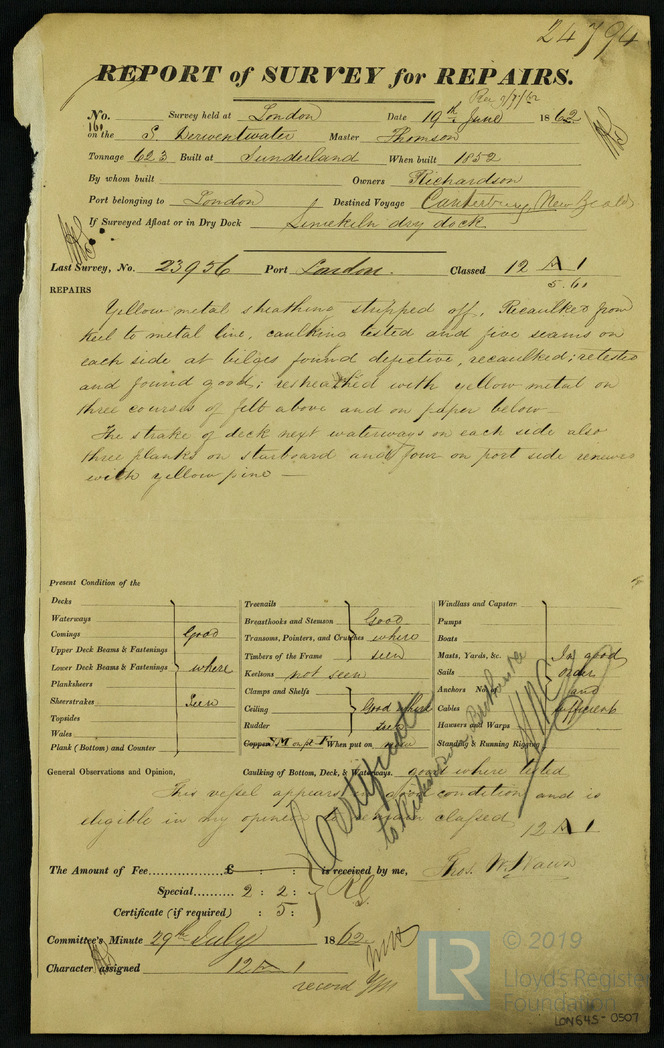 24794
REPORT of SURVEY for REPAIRS.
Rec 2/7/62
No. Survey held at London Date 19th June 1862
160
on the S Derwentwater Master Thomson
Tonnage 623 Built at Sunderland When built 1852
By whom built Owners Richardson
Port belonging to London Destined Voyage Canterbury, New Zeald
If Surveyed Afloat or in Dry Dock Limekiln dry dock
Last Survey, No. 23956 Port London. Classed 12 A 1
5.61
REPAIRS
Yellow metal sheathing stripped off, Recaulked from
keel to metal line, caulking tested and five seams on
each side at bilges found defective, recaulked; retested
and found good; resheathed with yellow metal on
three courses of felt above and on paper below —
The strake of deck next waterways on each side also
three planks on starboard and four on port side renewed
with yellow pine —
Present Condition of the
Decks
Waterways
Comings
Upper Deck Beams & Fastenings
Lower Deck Beams & Fastenings
Planksheers
Sheerstrakes
Topsides
Wales
Plank (Bottom) and Counter
Good
where
Seen
Treenails
Breasthooks and Stemson
Transoms, Pointers, and Crutches
Timbers of the Frame
Good
where
seen
Keelsons not seen
Clamps and Shelfs
Ceiling
Rudder
Good where
seen
Copper YM on pt F When put on new
Windlass and Capstan
Pumps
Boats
Masts, Yards, &c.
Sails
Anchors No. of
Cables
Hawsers and Warps
Standing & Running Rigging
In good
order
and
sufficient
General Observations and Opinion, Caulking of Bottom, Deck, & Waterways. good where tested
This vessel appears in good condition and is
eligible in my opinion to remain classed
12 A 1
Certificate
to Richardson
The Amount of Fee £ : : is received by me,
Special 2 : 2 :
Certificate (if required) : 5 :
Committee's Minute 29th July 1862
Character assigned 12 A 1
record
LR
© 2019
Lloyd's Register
Foundation
LON645-0507